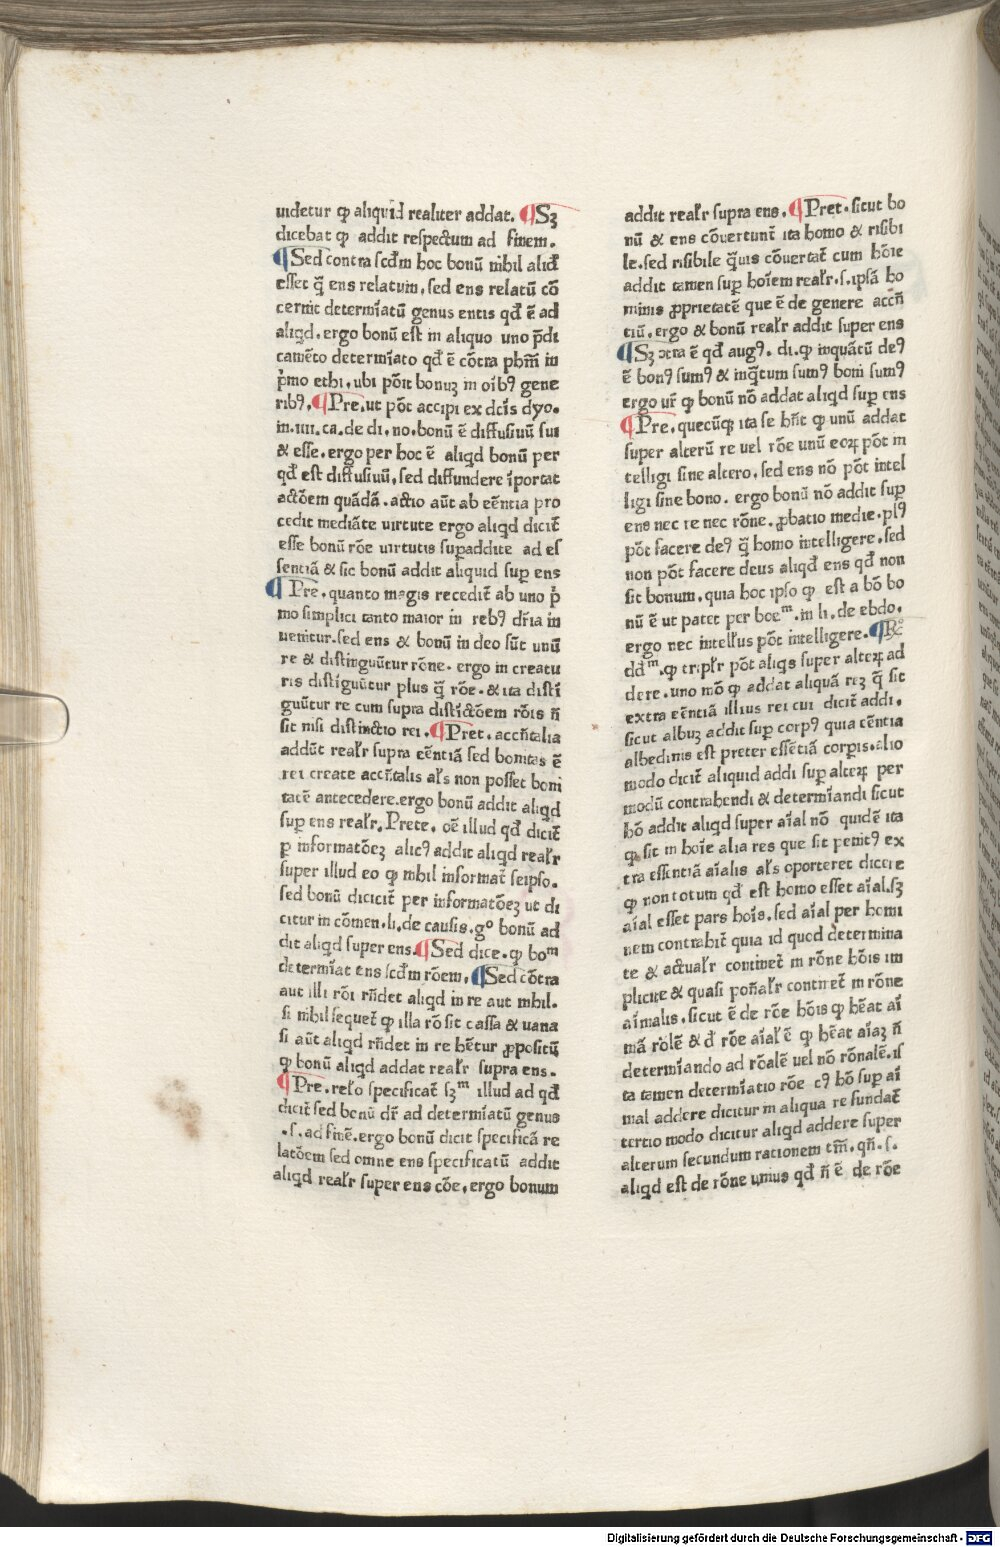 uidetur ꝙ aliquid realiter addat. ¶Sꝫ
dicebat ꝙ addit respectum ad finem.
¶Sed contra scd̄m hoc bonū nihil aliđ
esset q̄ ens relatum, sed ens relatū cō
cernit determīatū genus entis qđ ē ad
aliqd, ergo bonū est in aliquo uno p̄di
camēto determīato qđ ē cōtra phm̄ in
p̄mo ethi, ubi pōit bonuꝫ in oīb9 gene
rib9, ¶Pre, ut pōt accipi ex dcīs dyo.
in.iiii.ca.de di.no.bonū ē diffusiuū sui
& esse. ergo per hoc ē aliqd bonū per
qđ est diffusiuū, sed diffundere īportat
actōem quādā. actio aūt ab eēntia pro
cedit mediāte uirtute ergo aliqd dicit̄
esse bonū rōe uirtutis suꝑaddite ad es
sentiā & sic bonū addit aliquid suꝑ ens
¶Pre, quanto magis recedit̄ ab uno p̄
mo simplici tanto maior in reb9 dr̄ia in
uenitur. sed ens & bonū in deo sūt unū
re & distinguūtur rōne. ergo in creatu
ris distīguūtur plus q̄ rōe. & ita distī
guūtur re cum supra distīctōem rōis n̄
sit nisi distinctio rei. ¶Pret. accn̄talia
addūt realr supra eēntiā sed bonitas ē
rei create accn̄talis alr̄s non posset boni
tatē antecedere.ergo bonū addit aliqd
suꝑ ens realr, Prete, oē illud qđ dicit̄
ꝑ informatōeꝫ alic9 addit aliqd realr
super illud eo ꝙ nihil informat̄ seipso.
sed bonū dicicit̄ per informatōeꝫ ut di
citur in cōmen.li.de causis.go bonū ad
dit aliqd super ens. ¶Sed dice. ꝙ bom
determīat ens scd̄m rōem, ¶Sed cōtra
aut illi rōi rn̄det aliqd in re aut nihil.
si nihil sequet̄ ꝙ illa rō sit cassa & uana
si aūt aliqd rn̄det in re hētur ꝓpositū
ꝙ bonū aliqd addat realr supra ens.
¶Pre. relo specificat̄ sꝫm illud ad qđ
dicit̄ sed bonū dr̄ ad determīatū genus
.s. ad finē. ergo bonū dicit specificā re
latōem sed omne ens specificatū addit
aliqd realr super ens cōe, ergo bonum
addit realr supra ens. ¶Pret. sicut bo
nū & ens cōuertunt̄ ita homo & risibi
le. sed risibile q̄uis cōuertat̄ cum hōie
addit tamen suꝑ hoīem realr. s. ipsā ho
minis ꝓprietatē que ē de genere accn̄
tiū. ergo & bonū realr addit super ens
¶Sꝫ ↄtra ē qđ aug9. di. ꝙ inquātū de9
ē bon9 sum9 & inq̄tum sum9 boni sum9
ergo ur̄ ꝙ bonū nō addat aliqd suꝑ ens
¶Pre, quecūqꝫ ita se hn̄t ꝙ unū addat
super alterū re uel rōe unū eoꝝ pōt in
telligi sine altero, sed ens nō pōt intel
ligi sine bono. ergo bonū nō addit suꝑ
ens nec re nec rōne. ꝓbatio medie. pl9
pōt facere de9 q̄ homo intelligere. sed
non pōt facere deus aliqđ ens qđ non
sit bonum, quia hoc ipso ꝙ est a bō bo
nū ē ut patet per boem. in li. de ebdo.
ergo nec intellus pōt intelligere. ¶Rc
ddm. ꝙ triplr pōt aliqs super alteꝝ ad
dere. uno mō ꝙ addat aliquā reꝫ q̄ sit
extra eēntiā illius rei cui dicit̄ addi,
sicut albuꝫ addit suꝑ corp9 quia eēntia
albedinis est preter essētiā corpis. alio
modo dicit̄ aliquid addi suꝑ alteꝝ per
modū contrahendi & determīandi sicut
hō addit aliqd super aīal nō quidē ita
ꝙ sit in hoīe alia res que sit penit9 ex
tra essentiā aīalis alr̄s oporteret dicere
ꝙ non totum qđ est homo esset aīal. sꝫ
aīal esset pars hoīs. sed aīal per homi
nem contrahit̄ quia id quod determina
te & actualr continet̄ in rōne hōis im
plicite & quasi pon̄alr continet̄ in rōne
aīmalis, sicut ē de rōe hōis ꝙ hēat aī
mā rōlē & đ rōe aīal ē ꝙ hēat aīaꝫ n̄
determīando ad rōalē uel nō rōnalē. is
ta tamen determīatio rōe c9 hō suꝑ aī
mal addere dicitur in aliqua re fundat̄
tertio modo dicitur aliqd addere super
alterum secundum rationem tm̄. qn̄. s.
aliqd est de rōne unius qđ n̄ ē de rōe
Digitalisierung gefördert durch die Deutsche Forschungsgemeinschaft - DFG